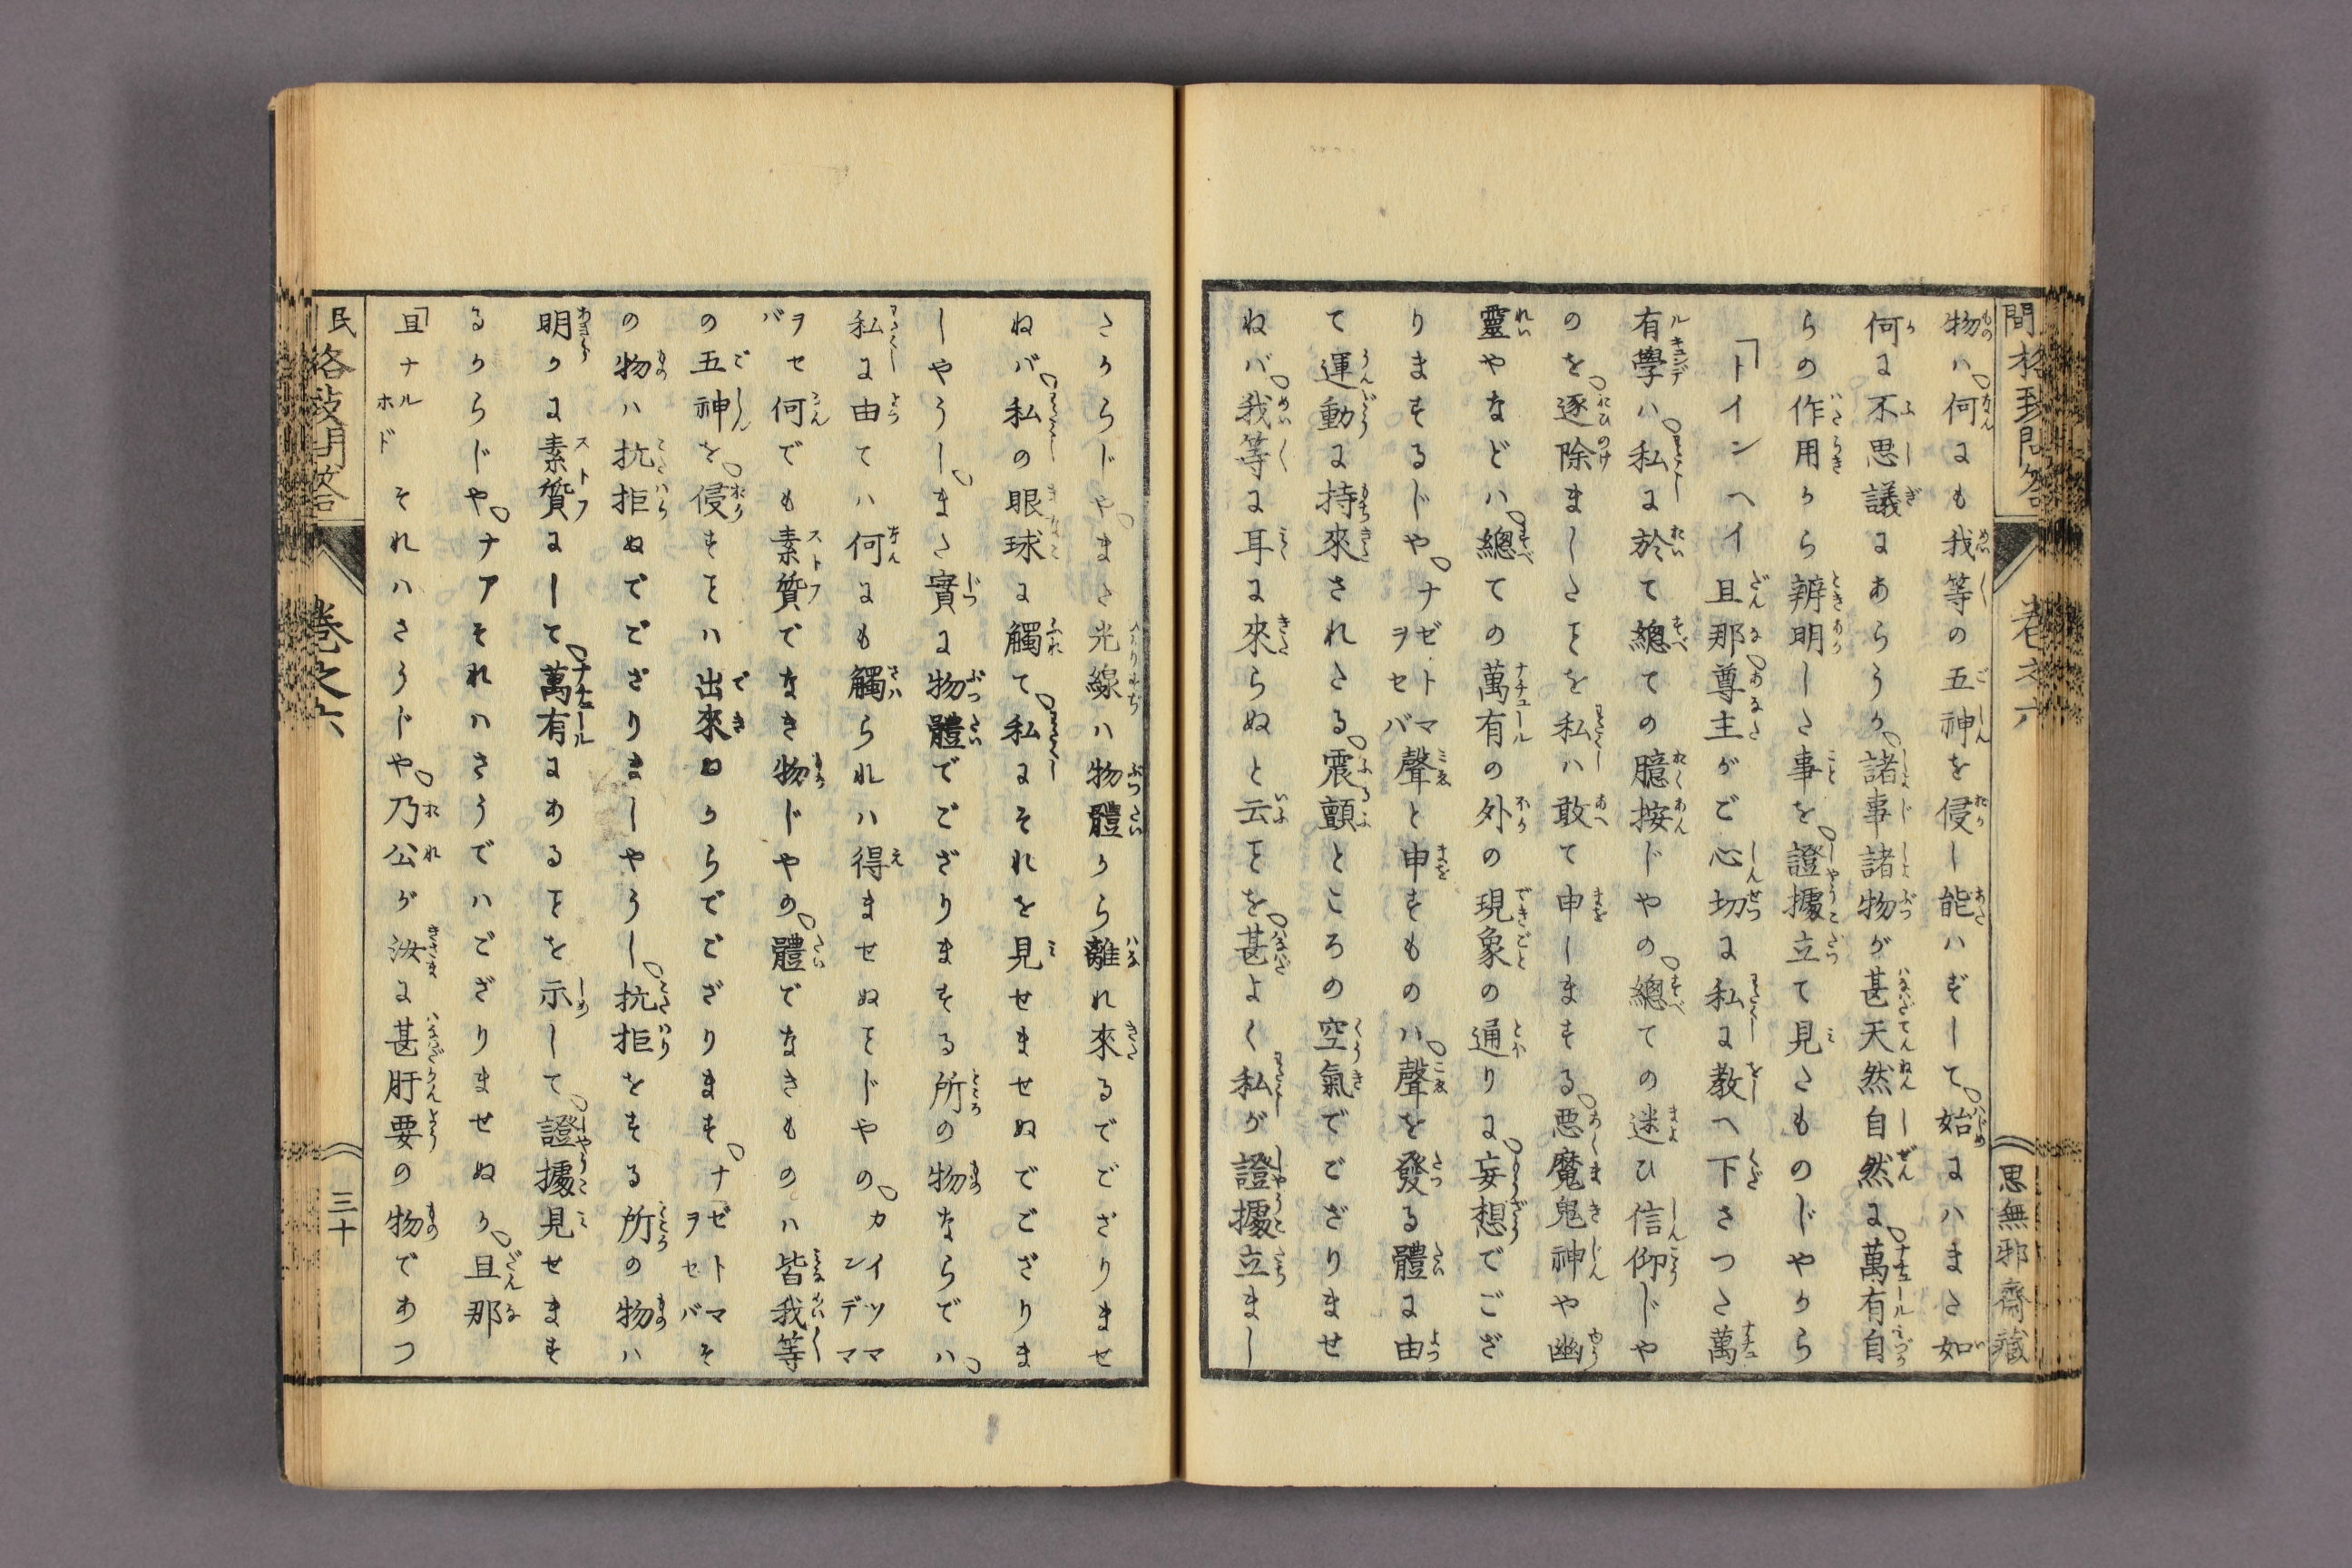 間格致問答 卷之六 思無邪齋藏
物ハ。何にも我等の五神を侵し能ハずして。始にハまた如
何に不思議にあらうか。諸事諸物が甚天然自然に。萬有自
らの作用から辨明した事を。證據立て見たものじやから
「トインヘイ且那。尊主がご心切に私に教へ下さつた萬
有學ハ。私に於て總ての臆按じやの。總ての迷ひ信仰じや
のを。逐除ましたヿを私ハ敢て申しまする。悪魔鬼神や幽
靈やなどハ。總ての萬有の外の現象の通りに。妄想でござ
りまするじや。ナゼトマヲセバ聲と申すものハ。聲を發る體に由
て運動に持來されたる。震顫ところの空氣でござりませ
ねバ。我等に耳に來らぬと云ヿを。甚よく私が證據立まし
たからじや。また光線ハ物體から離れ來るでござりませ
ねバ。私の眼球に觸て。私にそれを見せませぬでござりま
しやうし。また實に物體でござりまする所の物ならでハ。
私に由てハ何にも觸られハ得ませぬヿじやの。カイツマンデマ
ヲセバ何でも素質でなき物じやの。體でなきものハ皆我等
の五神を。侵すヿハ出來ぬからでござります。ナゼトマヲセバそ
の物ハ抗拒ぬでござりましやうし。抗拒をする所の物ハ
明かに素質にして。萬有にあるヿを示して。證據見せます
るからじや。ナアそれハさうでハござりませぬか。且那
「且ナルホドそれハさうじや。乃公が汝に甚肝要の物であつ
民格致問答 卷之六 三十